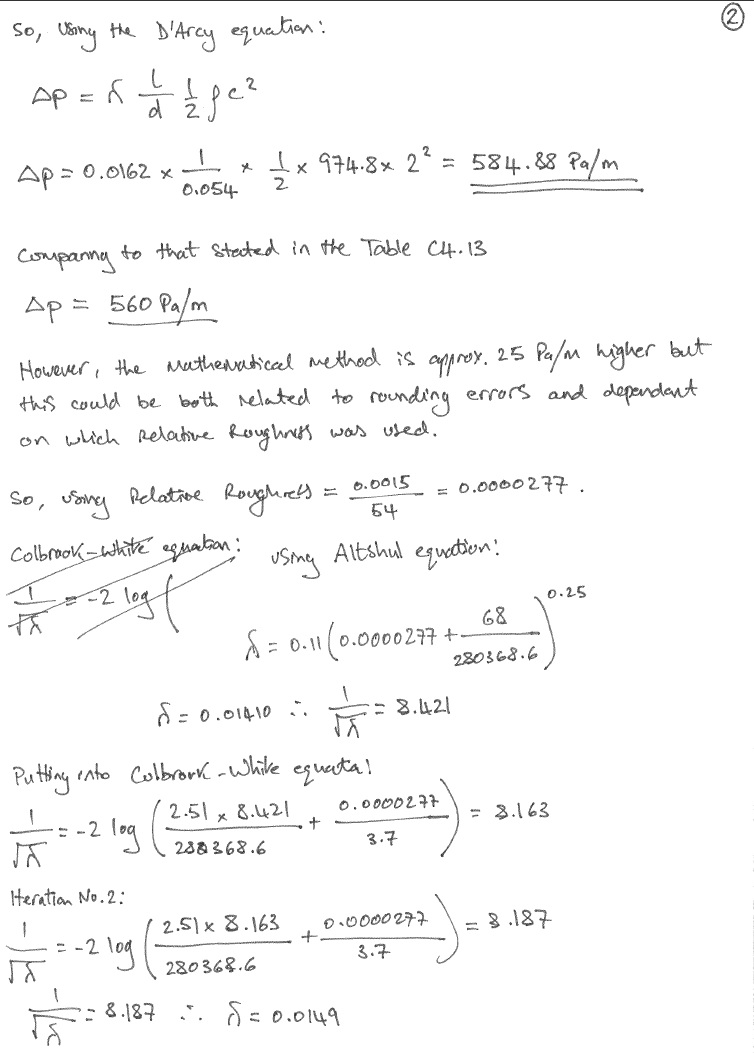 ②
So, using the D'Arcy equation:
Δp = λ l/d 1/2 ρc²
Δp = 0.0162 × 1/0.054 × 1/2 × 974.8 × 2² = 584.88 Pa/m
Comparing to that stated in the Table C4.13
Δp = 560 Pa/m
However, the mathematical method is approx. 25 Pa/m higher but
this could be both related to rounding errors and dependant
on which Relative Roughness was used.
So, using Relative Roughness = 0.0015/54 = 0.0000277.
Colbrook-White equation: using Altshul equation:
1/√λ = -2 log (
λ = 0.11 (0.0000277 + 68/280368.6)^0.25
λ = 0.01410 ∴ 1/√λ = 8.421
Putting into Colbrook-White equatal
1/√λ = -2 log (2.51 × 8.421/280368.6 + 0.0000277/3.7) = 8.163
Iteration No.2:
1/√λ = -2 log (2.51 × 8.163/280368.6 + 0.0000277/3.7) = 8.187
1/√λ = 8.187 ∴ λ = 0.0149